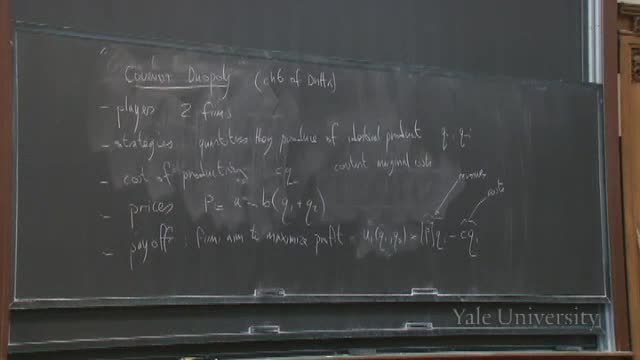 Cournot Duopoly (ch 6 of Dutta)
- players 2 firms
- strategies : quantities they produce of identical product q_i q_-i
- cost of production cq constant marginal costs
- prices P = a - b(q_1 + q_2)
revenues
costs
- payoffs : firms aim to maximize profit u_1(q_1, q_2) = [P]q_1 - cq_1
Yale University